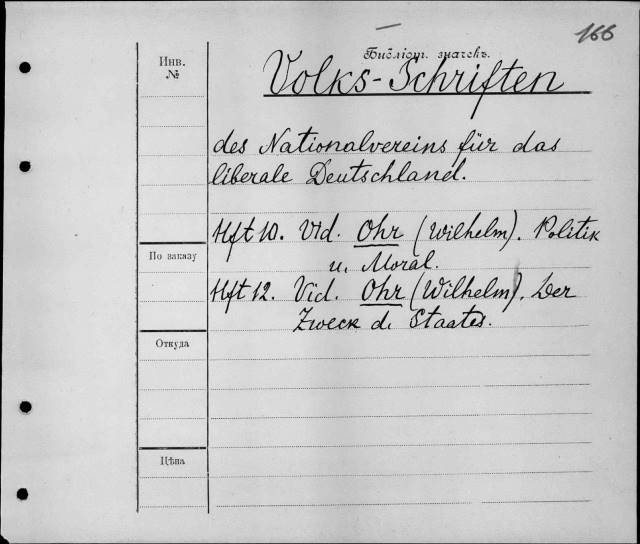 166
Библіот. значекъ.
Volks-Schriften
Инв.
№
des Nationalvereins für das
liberale Deutschland.
Hft 10. Vid. Ohr (Wilhelm). Politik
u. Moral.
По заказу
Hft 12. Vid. Ohr (Wilhelm). Der
Zweck d. Staates.
Откуда
Цѣна